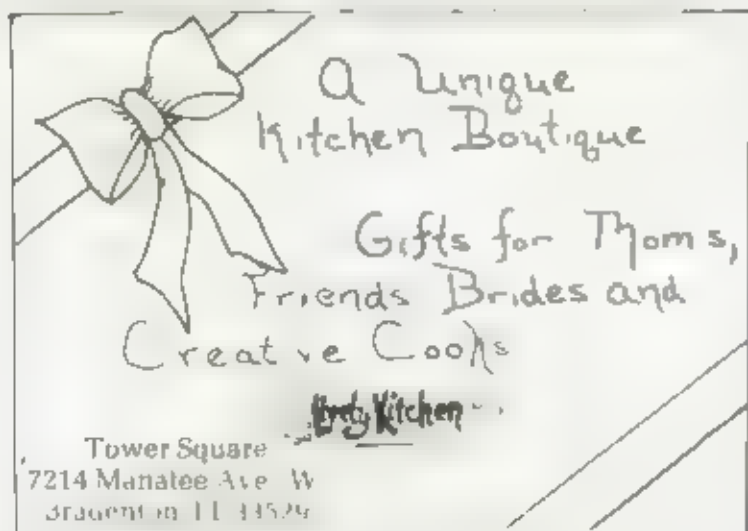 A Unique
Kitchen Boutique
Gifts for Moms,
Friends Brides and
Creative Cooks
Kitchen
Tower Square
7214 Manatee Ave W
Bradenton